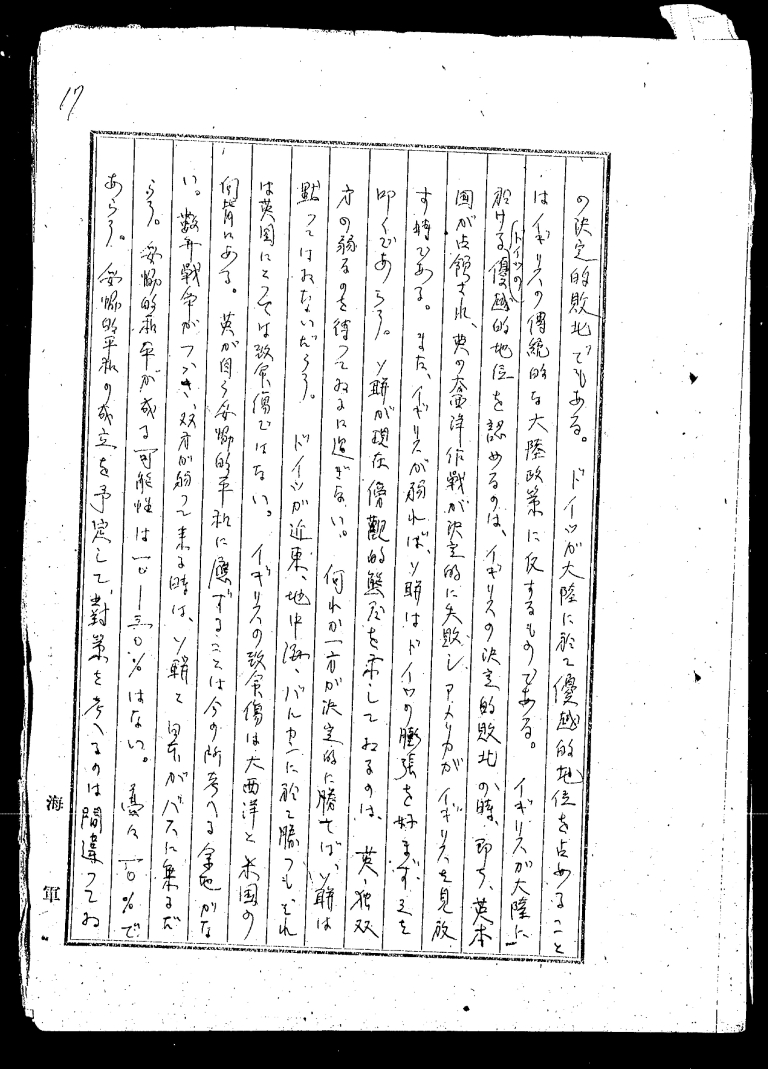 17
の決定的敗北でもある。ドイツが大陸に於て優越的地位を占めること
はイギリスの傳統的な大陸政策に反するものである。イギリスが大陸に
於ける(ドイツの)優越的地位を認めるのは、イギリスの決定的敗北の時、即ち、英本
国が占領され、英の大西洋作戰が決定的に失敗し アメリカがイギリスを見放
す時である。また、イギリスが弱れば、ソ聯はドイツの膨張を好まず之を
叩くであらう。ソ聯が現在傍觀的態度を示してゐるのは、英、独双
方の弱るのを待つてゐるに過ぎない。何れか一方が決定的に勝てば、ソ聯は
黙つてはゐないだらう。ドイツが近東、地中海、バルカンに於て勝つもそれ
は英国にとつては致命傷ではない。イギリスの致命傷は大西洋と米国の
向背にある。英が自ら妥協的平和に應ずることは今の所考へる余地がな
い。数年戰争がつゞき、双方が弱つて来る時は、ソ聯と日本がバスに乗るだ
らう。妥協的和平が成る可能性は 二〇—三〇%はない。高々 一〇%で
あらう。妥協的平和の成立を予定して、對策を考へるのは間違つてゐ
海軍